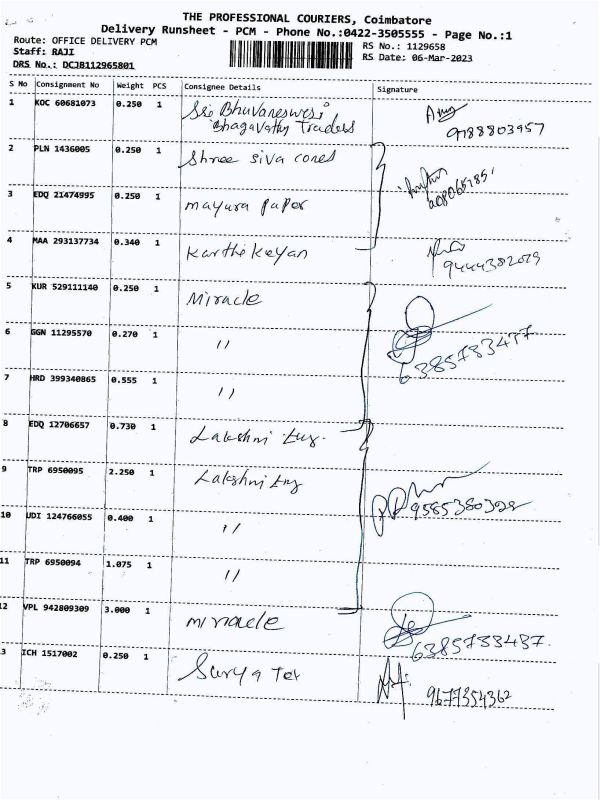 THE PROFESSIONAL COURIERS, Coimbatore
Delivery Runsheet - PCM - Phone No.:0422-3505555 - Page No.:1
Route: OFFICE DELIVERY PCM
RS No.: 1129658
Staff: RAJI
RS Date: 06-Mar-2023
DRS No.: DCJB112965801
S No Consignment No Weight PCS Consignee Details Signature
1 KOC 60681073 0.250 1 Sri Bhuvaneswari
Bhagavathy Traders
9188803957
2 PLN 1436005 0.250 1 Shree siva cones
3 EDQ 21474995 0.250 1 mayura paper
4 MAA 293137734 0.340 1 Karthikeyan
9444382079
5 KUR 529111140 0.250 1 Miracle
6 GGN 11295570 0.270 1 "
6385783437
7 HRD 399340865 0.555 1 "
8 EDQ 12706657 0.730 1 Lakshmi Eng.
9 TRP 6950095 2.250 1 Lakshmi Eng
10 UDI 124766055 0.400 1 "
11 TRP 6950094 1.075 1 "
12 VPL 942809309 3.000 1 miracle
6385733437.
3 ICH 1517002 0.250 1 Surya Tex
9677354362